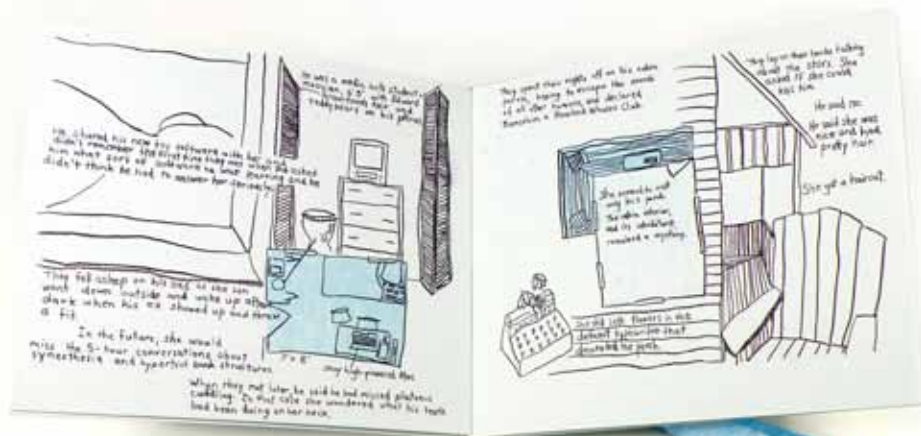 He was a media arts student,
musician, 6'3" with Edward
hair and
teddybears on his
He shared his new toy software with her and
didn't remember the first time they met when she asked
him what sort of software he was learning and he
didn't think he had to answer her seriously.
They fell asleep on his bed as the sun
went down outside and woke up after
dark when his ex showed up and threw
a fit.
In the future, she would
miss the 5-hour conversations about
synesthesia and hypertext book structures
7' x 8'
When they met later, he said he had missed platonic
cuddling. In that case she wondered what his teeth
had been doing on her neck.
They spent their nights off on his cabin
porch, hoping to escape the sounds
of all other humans, and declared
themselves a Club.
She seemed to
only his porch.
The cabin interior,
and its inhabitant,
remained a mystery.
She left flowers in the
defunct typewriter that
decorated the porch.
They lay on their backs talking
about the stars. She
asked if she could
kiss him.
He said no.
He said she was
nice and had
pretty hair.
She got a haircut.